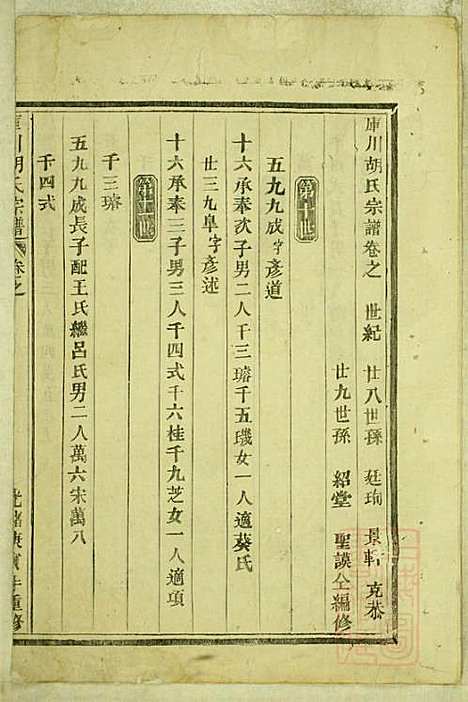 庫川胡氏宗譜卷之 世紀 廿八世孫 廷珣 景軒 克恭
廿九世孫 紹堂 聖謨仝編修
第十世
五九九成字彥道
十六承奉次子男二人千三璿千五璣女一人適葵氏
廿三九阜字彥述
十六承奉三子男三人千四式千六桂千九芝女一人適項
第十一世
千三璿
五九九成長子配王氏繼呂氏男二人萬六宋萬八
千四式
庫川胡氏宗譜 卷之 光緒庚寅年重修